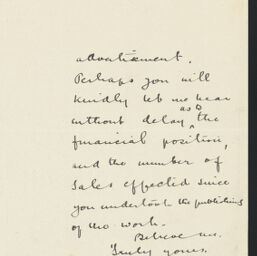 advertisement.
Perhaps you will
kindly let me hear
without delay, as to the
financial position,
and the number of
sales effected since
you undertook the publishing
of the work.
Believe me.
Truly yours.